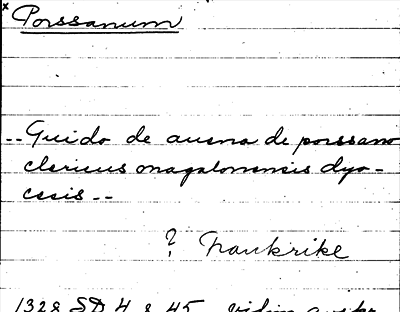 x Porssanum
-- Guido de ausna de porssano
clericus magalonensis dyo-
cesis --
? Frankrike
1328 SD 4 s 45